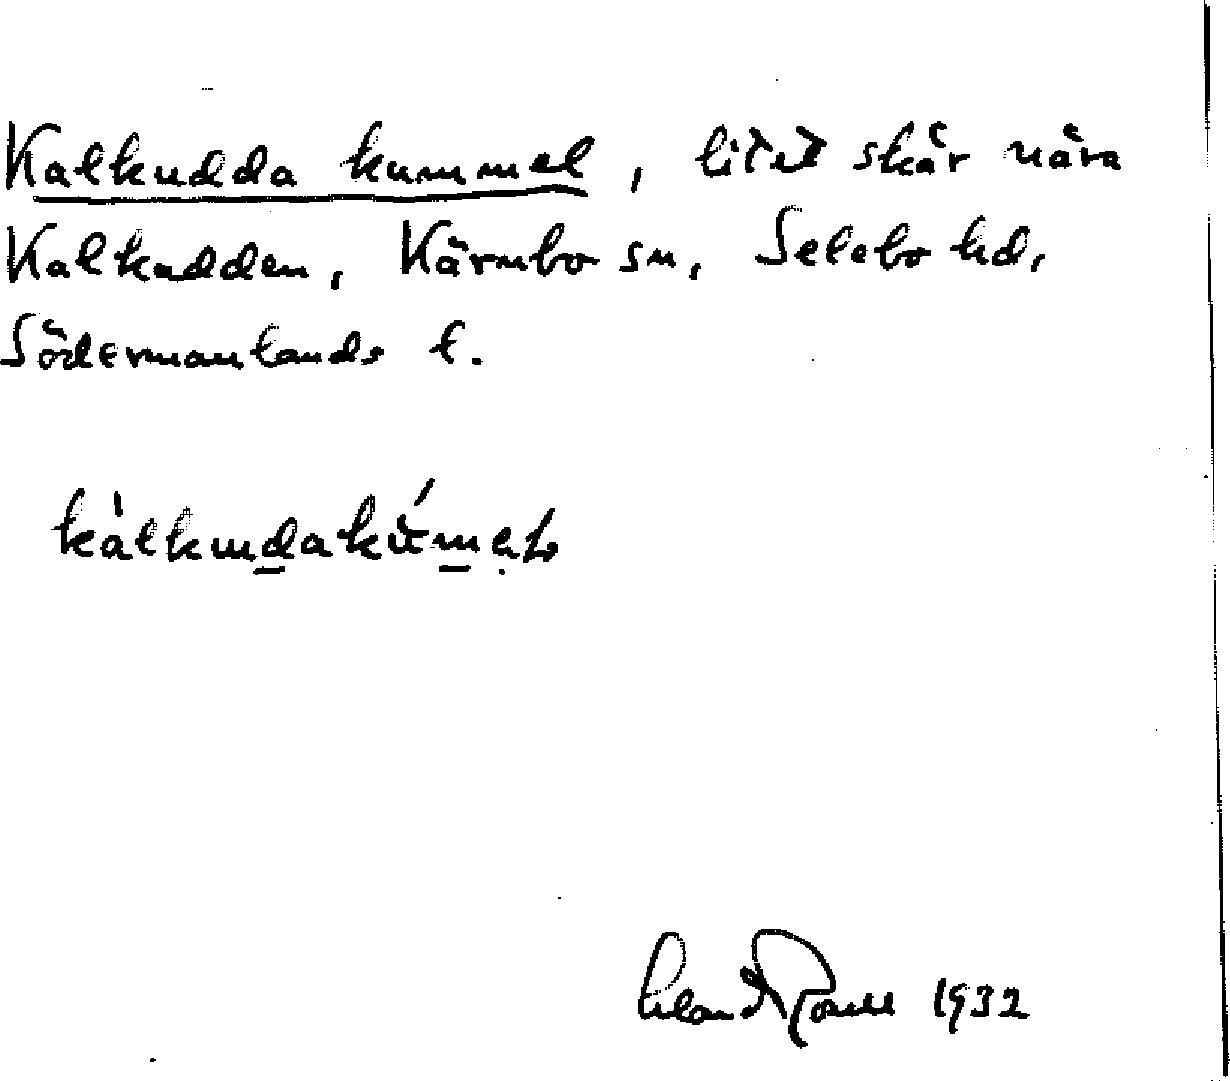 Kalkudda kummel, litet skär nära
Kalkudden, Kärnbo sn, Selebo hd,
Södermanlands l.
1932